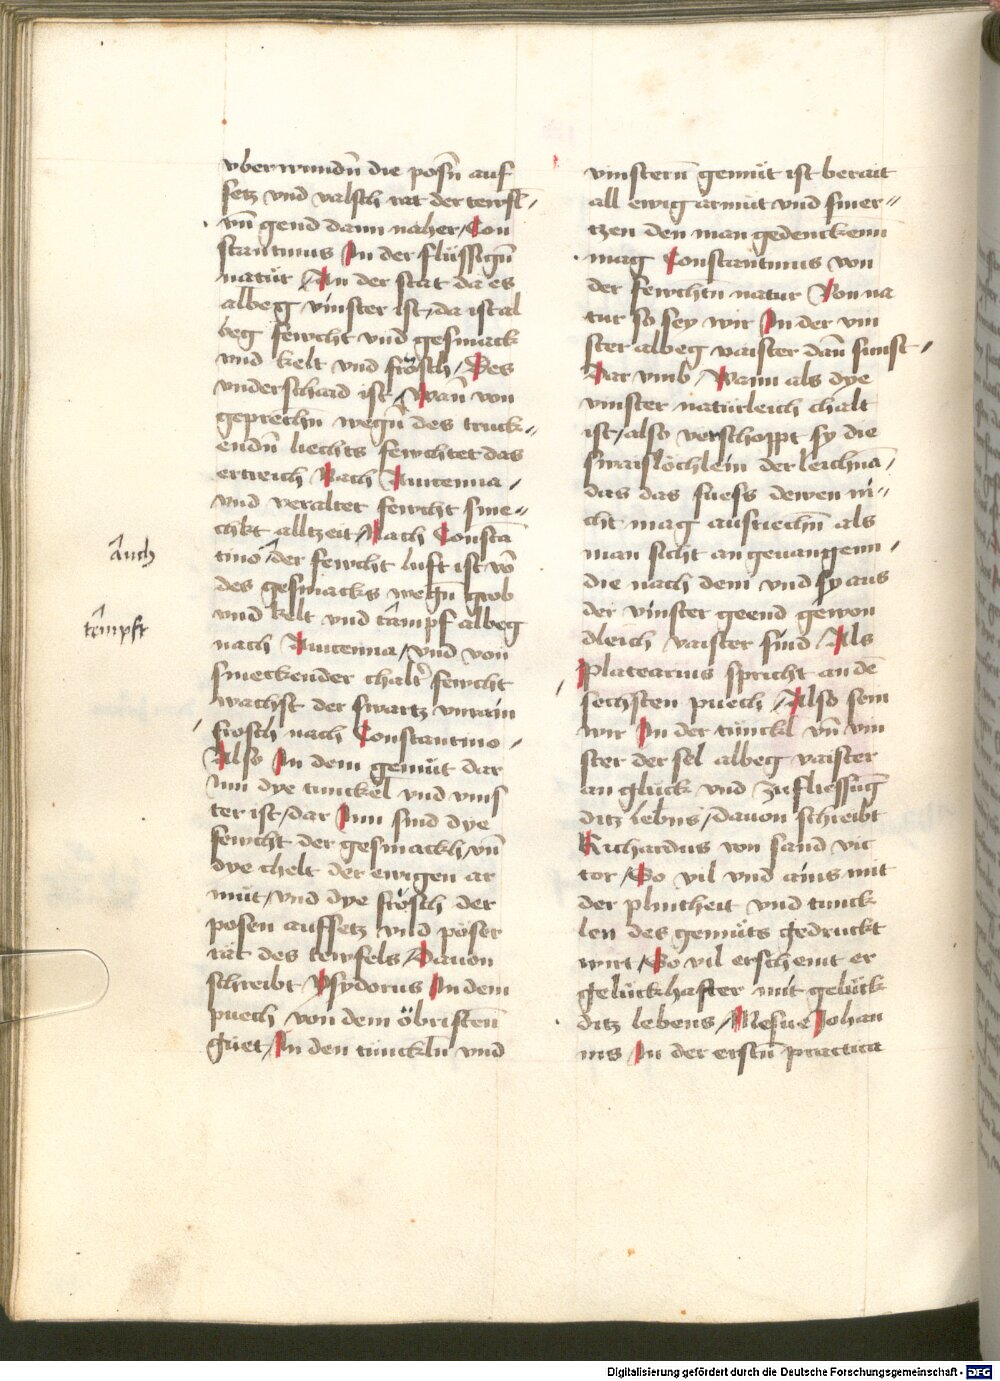 vberwundn̄ die posn̄ auf
setz vnd valsch rat der tewfl̄
vn̄ gend dann naher / Con
stantinus In der flüssign̄
natür / An der stat da es
albeg vinster ist / da ist al
beg fewcht vnd gesmack
vnd kelt vnd frosch / Des
vnderschaid ist / Wan̄ von
geprechn̄ wegn̄ des truck
endn̄ liechts fewchtet das
ertreich Nach Auicenna
vnd veraltet fewcht sme
chkt alltzeit / Nach Constā
tino / der fewcht luft ist vō
des gesmacks wegn̄ grob
vnd kelt vnd tämpf albeg
nach Auicenna / vnd von
smeckender fewcht
wachst der swartz vnrain
frosch nach Constantino
Also In dem gemüt dar
Inn dye tunckel vnd vins
ter ist / dar Inn sind dye
fewcht der gesmackh / vn̄
dye chelt der ewigen ar
müt / vnd dye frösch der
posen auffsetz vnd pöser
rät des tewfels / Dauon
schreibt Ysydorus In dem
puech von dem öbristen̄
güet / In den tünckln̄ vnd
Auch
tempft
vinstern̄ gemüt ist berait
all ewig armüt vnd smer
tzen den man gedencken̄
mag Constantinus von
der fewchtn̄ natur Von na
tur so sey wir In der vin
ster albeg vaister dan̄ sunst
Dar vmb / Wann als dye
vinster natürleich chalt
ist / also verschoppt sy die
swaislöchlein der leichnā
das das suess dewen ni
cht mag austiechn̄ als
man sicht an geuangenn
die nach dem vnd sy aus
der vinster geend gewon
dleich vaister sind / Als
Platearius spricht an dē
sechsten puech / Also sein
wir In der tünckl vn̄ vin
ster der sel albeg vaister
an glück vnd zufliessūg
ditz lebns / dauon schreibt
Richardus von sand vic
tor / So vil vnd ains mit
der plintheit vnd tunck
len des gemüts gedruckt
wirt / So vil erscheint er
gelückhafter mit gelück
ditz lebens / Mesue Johan
nis In der erstn̄ practica
Digitalisierung gefördert durch die Deutsche Forschungsgemeinschaft - DFG